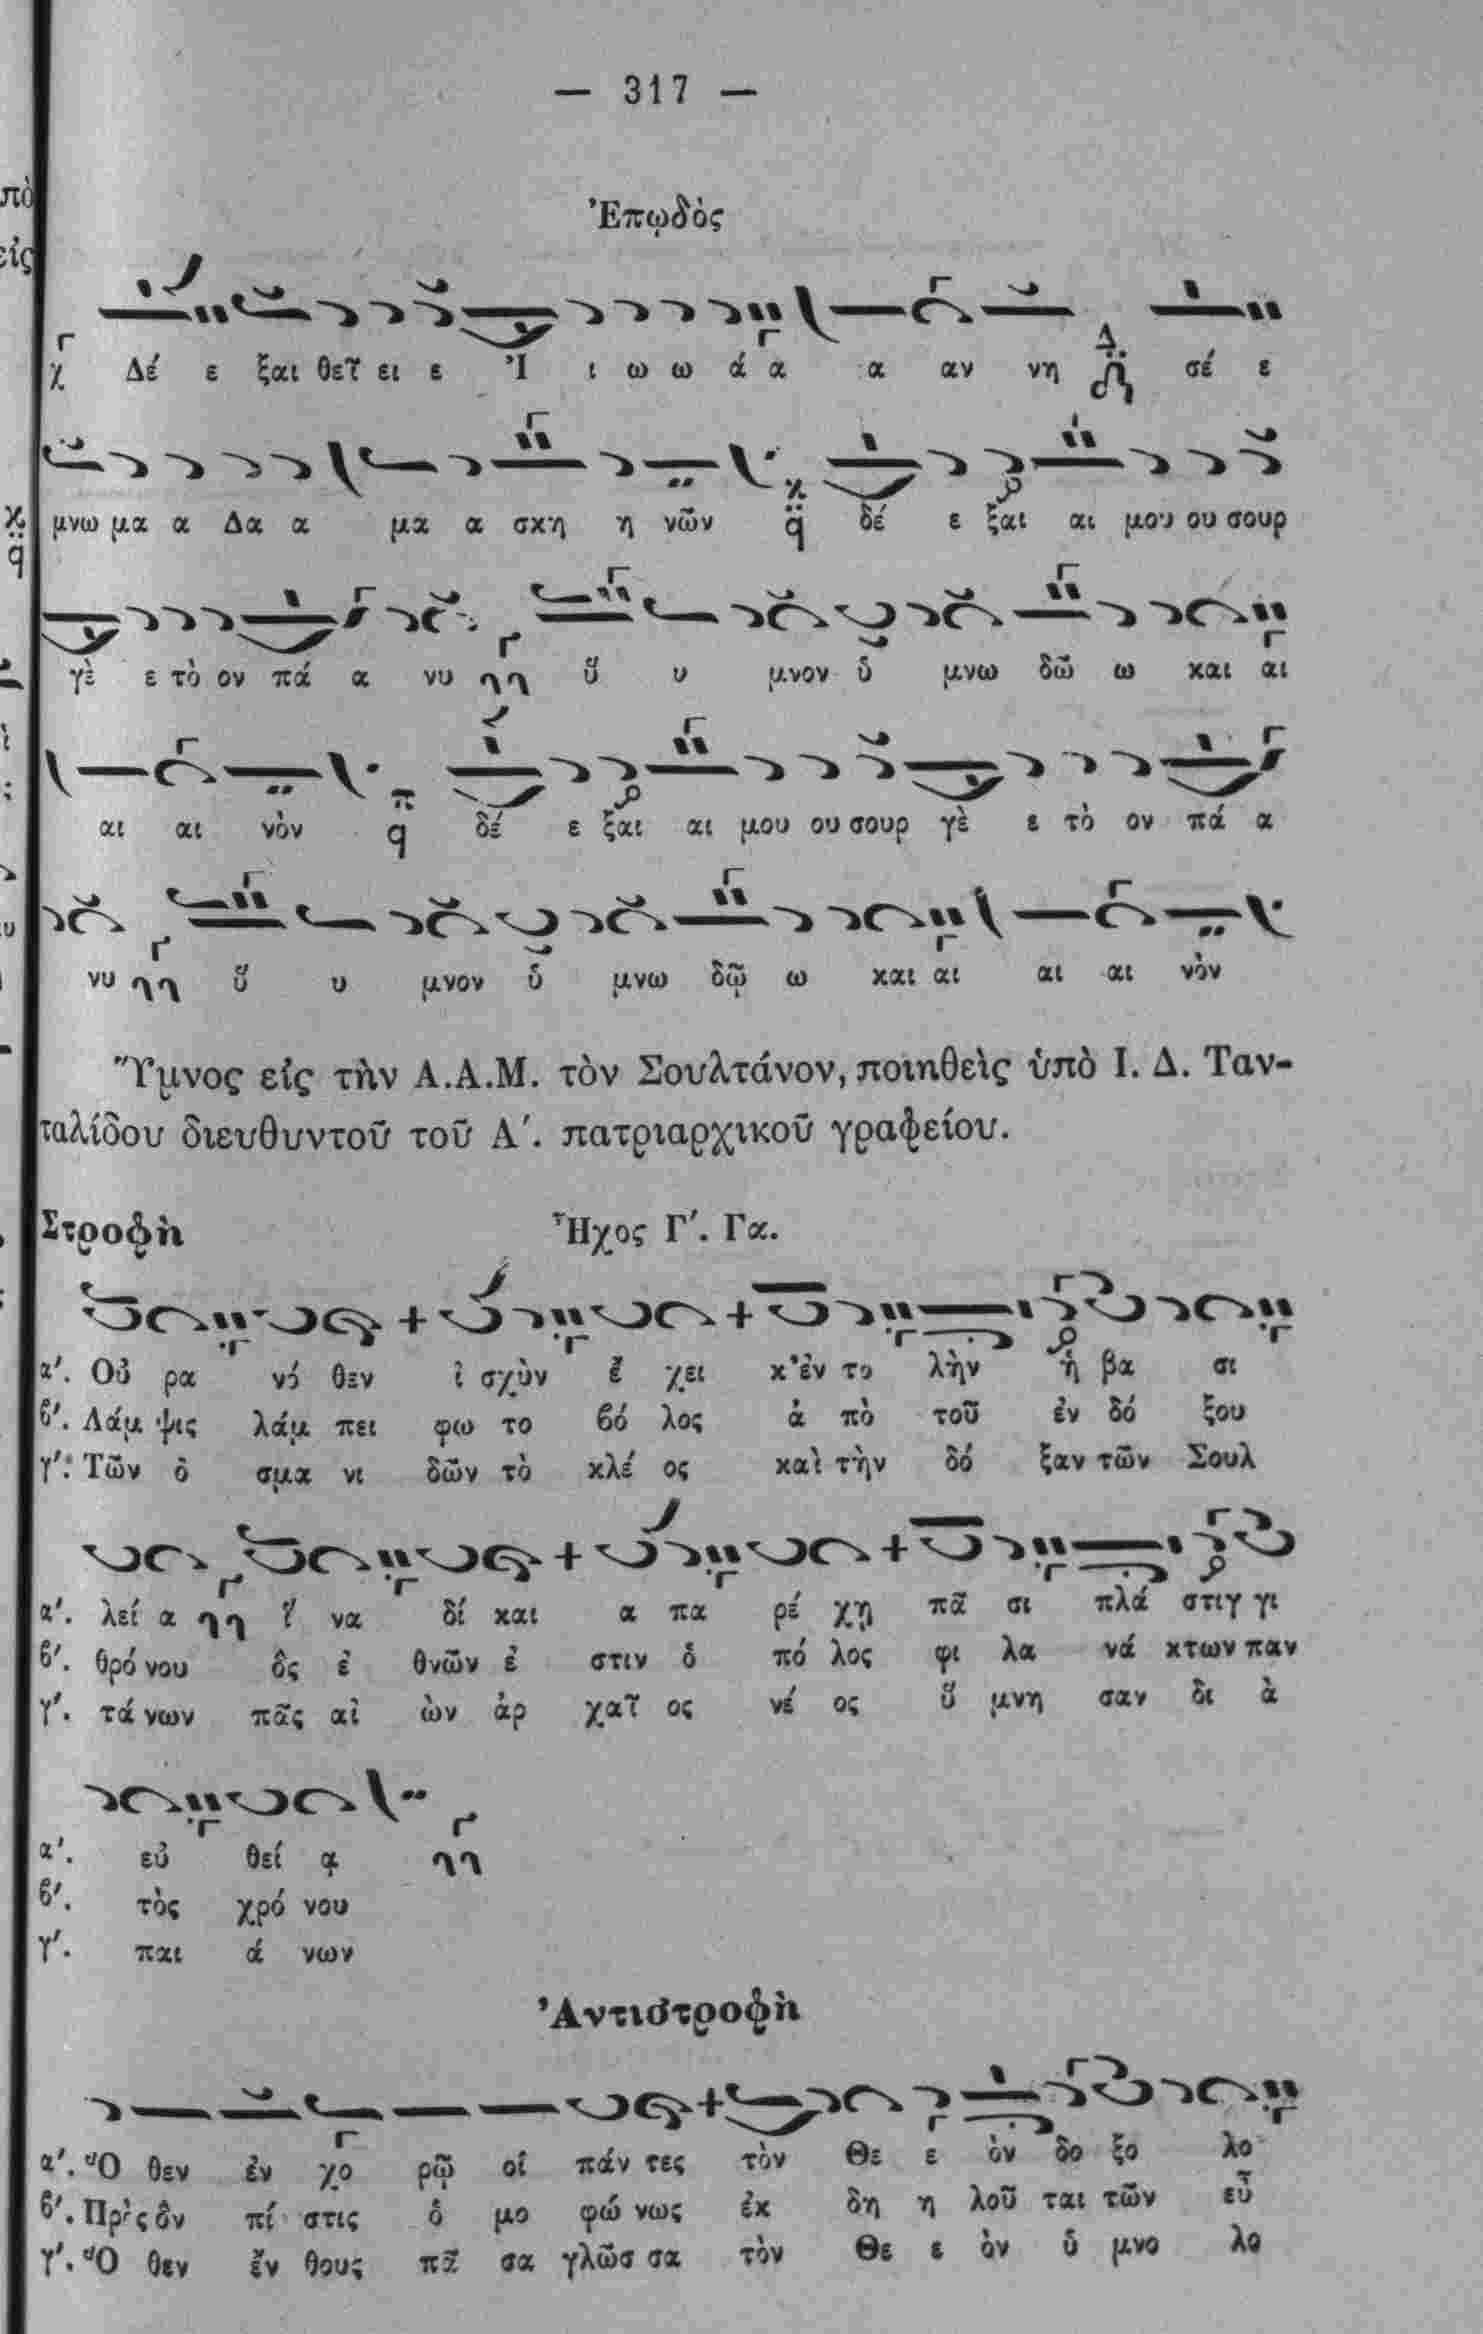 — 317 —
πὸ
εἰς
Ἐπῳδὸς
Δέ ε ξαι θεῖ ει ε Ἰ ι ω ω ά α α αν νη σέ ε
μνω μα α Δα α μα α σκη η νῶν δέ ε ξαι αι μου ου σουρ
γὲ ε τὸ ον πά α νυ ὕ υ μνον ὑ μνω δῶ ω και αι
αι αι νὸν δέ ε ξαι αι μου ου σουρ γὲ ε τὸ ον πά α
νυ ὕ υ μνον ὑ μνω δῷ ω και αι αι αι νὸν
Ὕμνος εἰς τὴν Α.Α.Μ. τὸν Σουλτάνον, ποιηθεὶς ὑπὸ Ι. Δ. Ταν-
ταλίδου διευθυντοῦ τοῦ Α΄. πατριαρχικοῦ γραφείου.
Στροφὴ Ἦχος Γ΄. Γα.
α΄. Οὐ ρα νό θεν ἰ σχὺν ἔ χει κ’ἐν το λὴν ἡ βα σι
β΄. Λάμ ψις λάμ πει φω το βό λος ἀ πὸ τοῦ ἐν δό ξου
γ΄. Τῶν ὀ σμα νι δῶν τὸ κλέ ος καὶ τὴν δό ξαν τῶν Σουλ
α΄. λεί α ἵ να δί και α πα ρέ χῃ πᾶ σι πλά στιγ γι
β΄. θρό νου ὃς ἐ θνῶν ἐ στιν ὁ πό λος φι λα νά κτων παν
γ΄. τά νων πᾶς αἰ ὼν ἀρ χαῖ ος νέ ος ὕ μνη σαν δι ὰ
α΄. εὐ θεί ᾳ
β΄. τὸς χρό νου
γ΄. παι ά νων
Ἀντιστροφὴ
α΄. Ὅ θεν ἐν χο ρῷ οἱ πάν τες τὸν Θε ε ὸν δο ξο λο
β΄. Πρὸς ὃν πί στις ὁ μο φώ νως ἐκ δη η λοῦ ται τῶν εὖ
γ΄. Ὅ θεν ἔν θους πᾶ σα γλῶσ σα τὸν Θε ε ὸν ὑ μνο λο